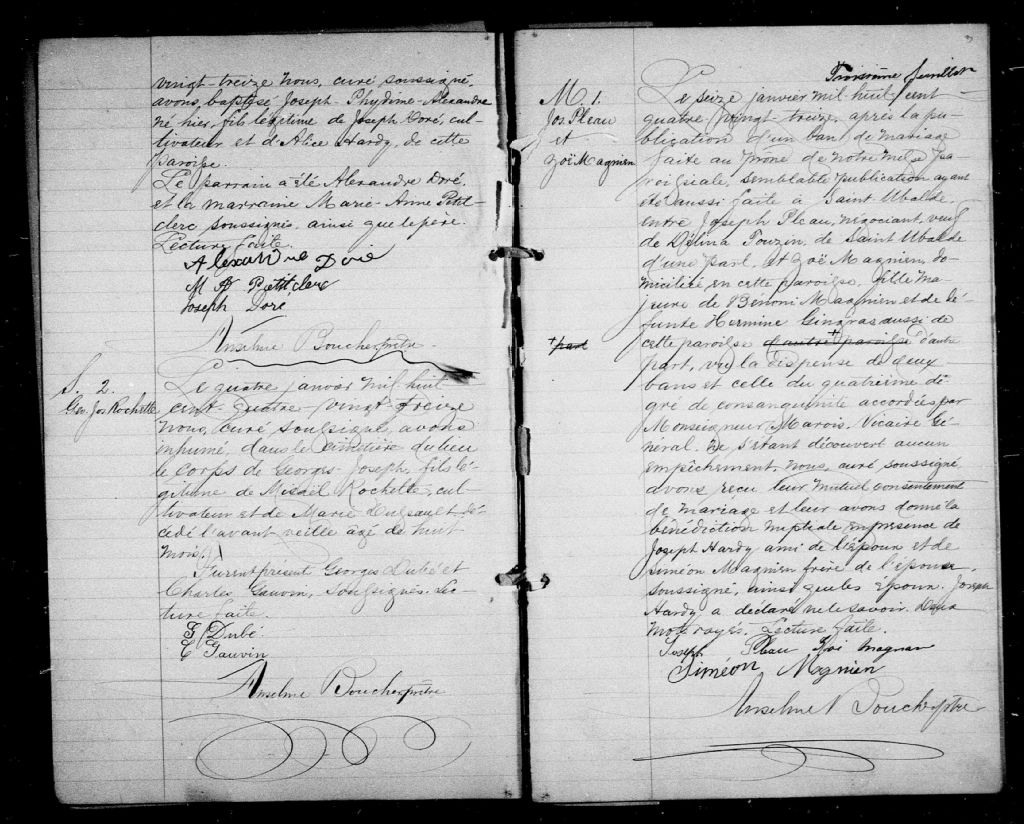 vingt-treize nous, curé soussigné,
avons, baptisé Joseph-Phydime-Alexandre
né hier, fils légitime de Joseph Doré, cul-
tivateur et d'Alice Hardy, de cette
paroisse.
Le parrain a été Alexandre Doré,
et la marraine Marie-Anne Petit-
clerc soussignés, ainsi que le père.
Lecture faite.
Alexandre Doré
M A Petitclerc
Joseph Doré
Anselme Boucher ptre.
S. 2.
Geo. Jos. Rochette
Le quatre janvier mil huit
cent quatre-vingt-treize
nous, curé soussigné, avons
inhumé, dans le cimetière du lieu
le corps de Georges-Joseph, fils lé-
gitime de Misaël Rochette, cul-
tivateur et de Marie Dussault dé-
cédé l'avant-veille âgé de huit
mois.
Furent présent Georges Dubé et
Charles Gauvin, soussignés. Lec-
ture faite.
G Dubé
C Gauvin
Anselme Boucher ptre
Troisième feuillet
M. 1.
Jos Pleau
et
Zoë Magnien
Le seize janvier mil huit cent
quatre-vingt-treize, après la pu-
blication d'un ban de mariage
faite au prône de notre messe pa-
roissiale, semblable publication ayant
été aussi faite à Saint Ubalde
entre Joseph Pleau, négociant, veuf
de Délina Touzin, de Saint Ubalde
d'une part, et Zoë Magnien, do-
miciliée en cette paroisse, fille ma-
jeure de Benoni Magnien et de dé-
funte Hermine Gingras aussi de
cette paroisse d'autre + paroisse d'autre
+ part
part, vu la dispense de deux
bans et celle du quatrième de-
gré de consanguinité accordées par
Monseigneur Marois, Vicaire Gé-
néral. Ne s'étant découvert aucun
empêchement, nous, curé, soussigné
avons reçu leur mutuel consentement
de mariage et leur avons donné la
bénédiction nuptiale en présence de
Joseph Hardy ami de l'époux et de
Siméon Magnien frère de l'épouse,
soussigné, ainsi que les époux. Joseph
Hardy a déclaré ne le savoir. Deux
mots rayés. Lecture faite.
Joseph Pleau Zoé Magnan
Siméon Magnien
Anselme Boucher ptre